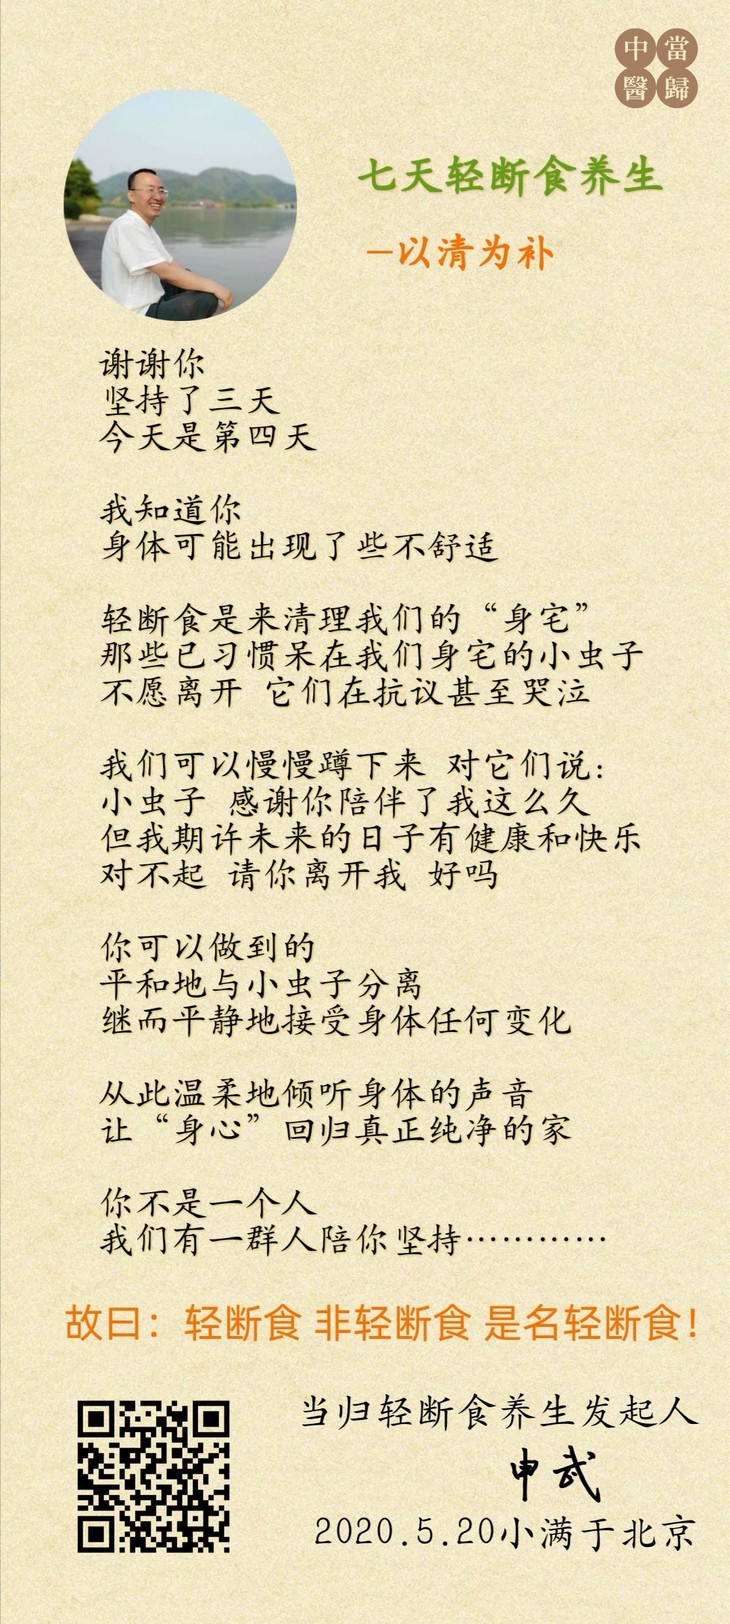 當歸
中醫
七天轻断食养生
—以清为补
谢谢你
坚持了三天
今天是第四天
我知道你
身体可能出现了些不舒适
轻断食是来清理我们的“身宅”
那些已习惯呆在我们身宅的小虫子
不愿离开 它们在抗议甚至哭泣
我们可以慢慢蹲下来 对它们说：
小虫子 感谢你陪伴了我这么久
但我期许未来的日子有健康和快乐
对不起 请你离开我 好吗
你可以做到的
平和地与小虫子分离
继而平静地接受身体任何变化
从此温柔地倾听身体的声音
让“身心”回归真正纯净的家
你不是一个人
我们有一群人陪你坚持…………
故曰：轻断食 非轻断食 是名轻断食！
当归轻断食养生发起人
申武
2020.5.20小满于北京